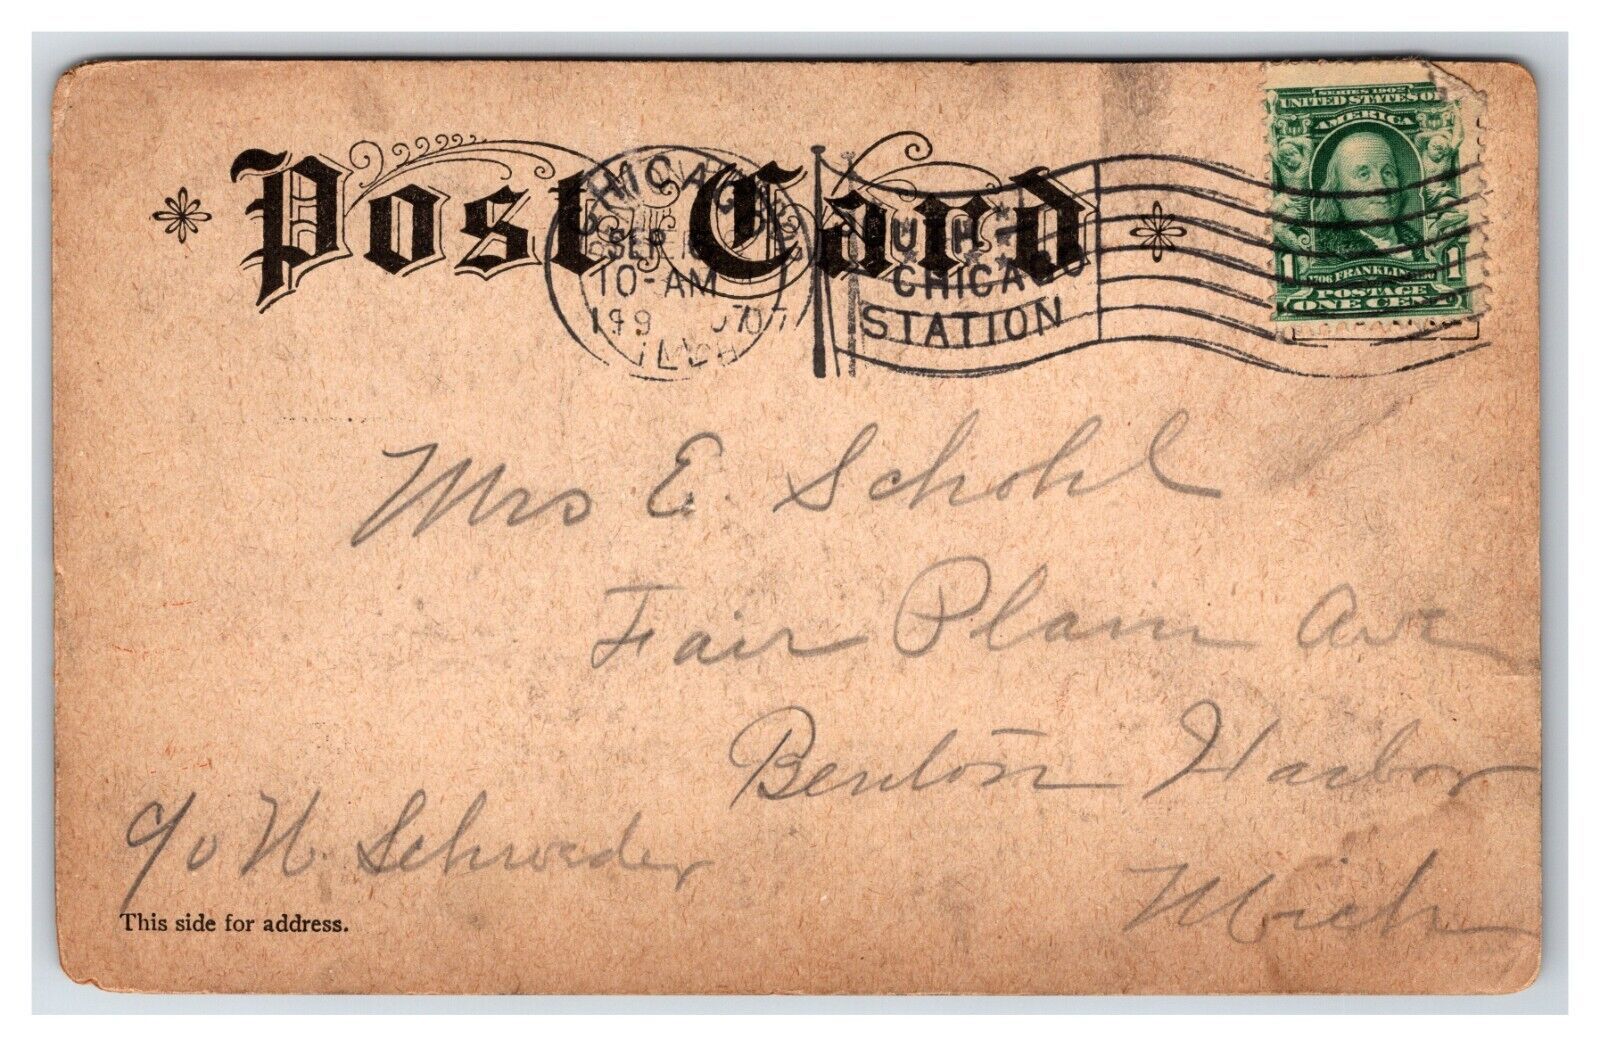 Post Card
CHICAGO
SEP
10-AM
CHICAGO
STATION
SERIES 1902
UNITED STATES OF
AMERICA
1 1706 FRANKLIN 1790 1
POSTAGE
ONE CENT
Mrs E. Schohl
Fair Plain Ave
Benton Harbor
Mich
c/o H. Schroeder
This side for address.